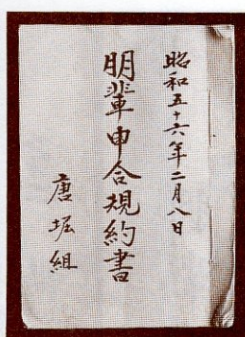 昭和五十六年二月八日
明輩申合規約書
唐堀組